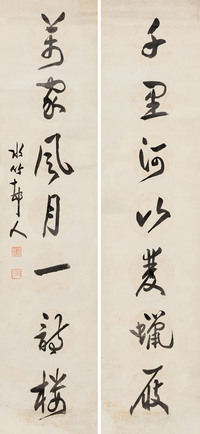 千里河山雙蠟屐
萬家風月一詩樓
水竹邨人